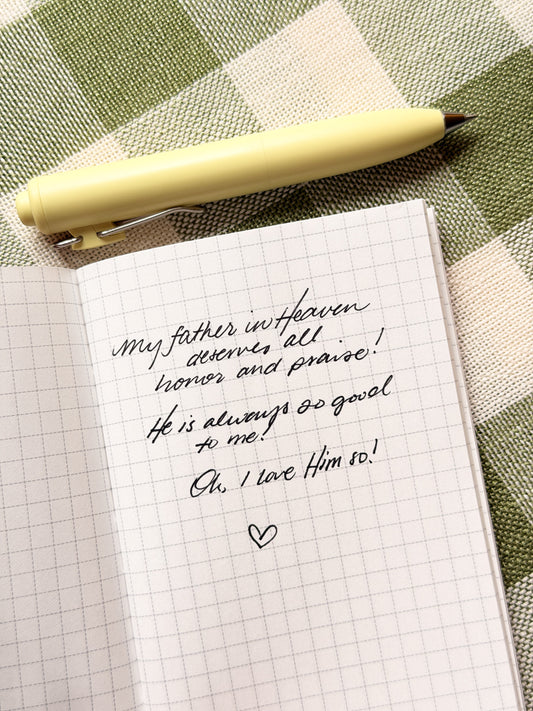 My father in Heaven
deserves all
honor and praise!
He is always so good
to me!
Oh, I love Him so!